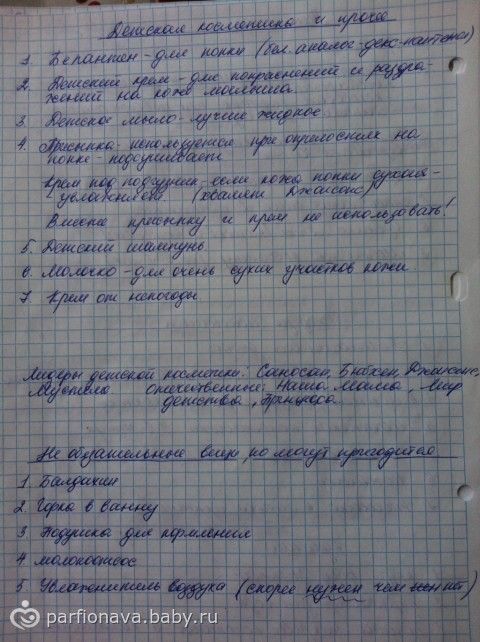 Детская косметика и прочее
1. Бепантен - для попки (бел. аналог - декспантенол)
2. Детский крем - для покраснений и раздра-
жений на коже малыша.
3. Детское мыло - лучше жидкое
4. Присыпка - используется при опрелостях на
попке - подсушивает
Крем под подгузник - если кожа попки сухая -
увлажняет. (хвалят Джонсонс)
Вместе присыпку и крем не использовать!
5. Детский шампунь
6. Молочко - для очень сухих участков кожи.
7. Крем от непогоды.
Лидеры детской косметики: Саносан, Бюбхен, Джонсонс,
Мустела отечественные: Наша Мама, Мир
детства, Принцесса
Не обязательные вещи, но могут пригодится
1. Балдахин
2. Горка в ванну
3. Подушка для кормления
4. молокоотсос
5. Увлажнитель воздуха (скорее нужен чем нет)
parfionava.baby.ru